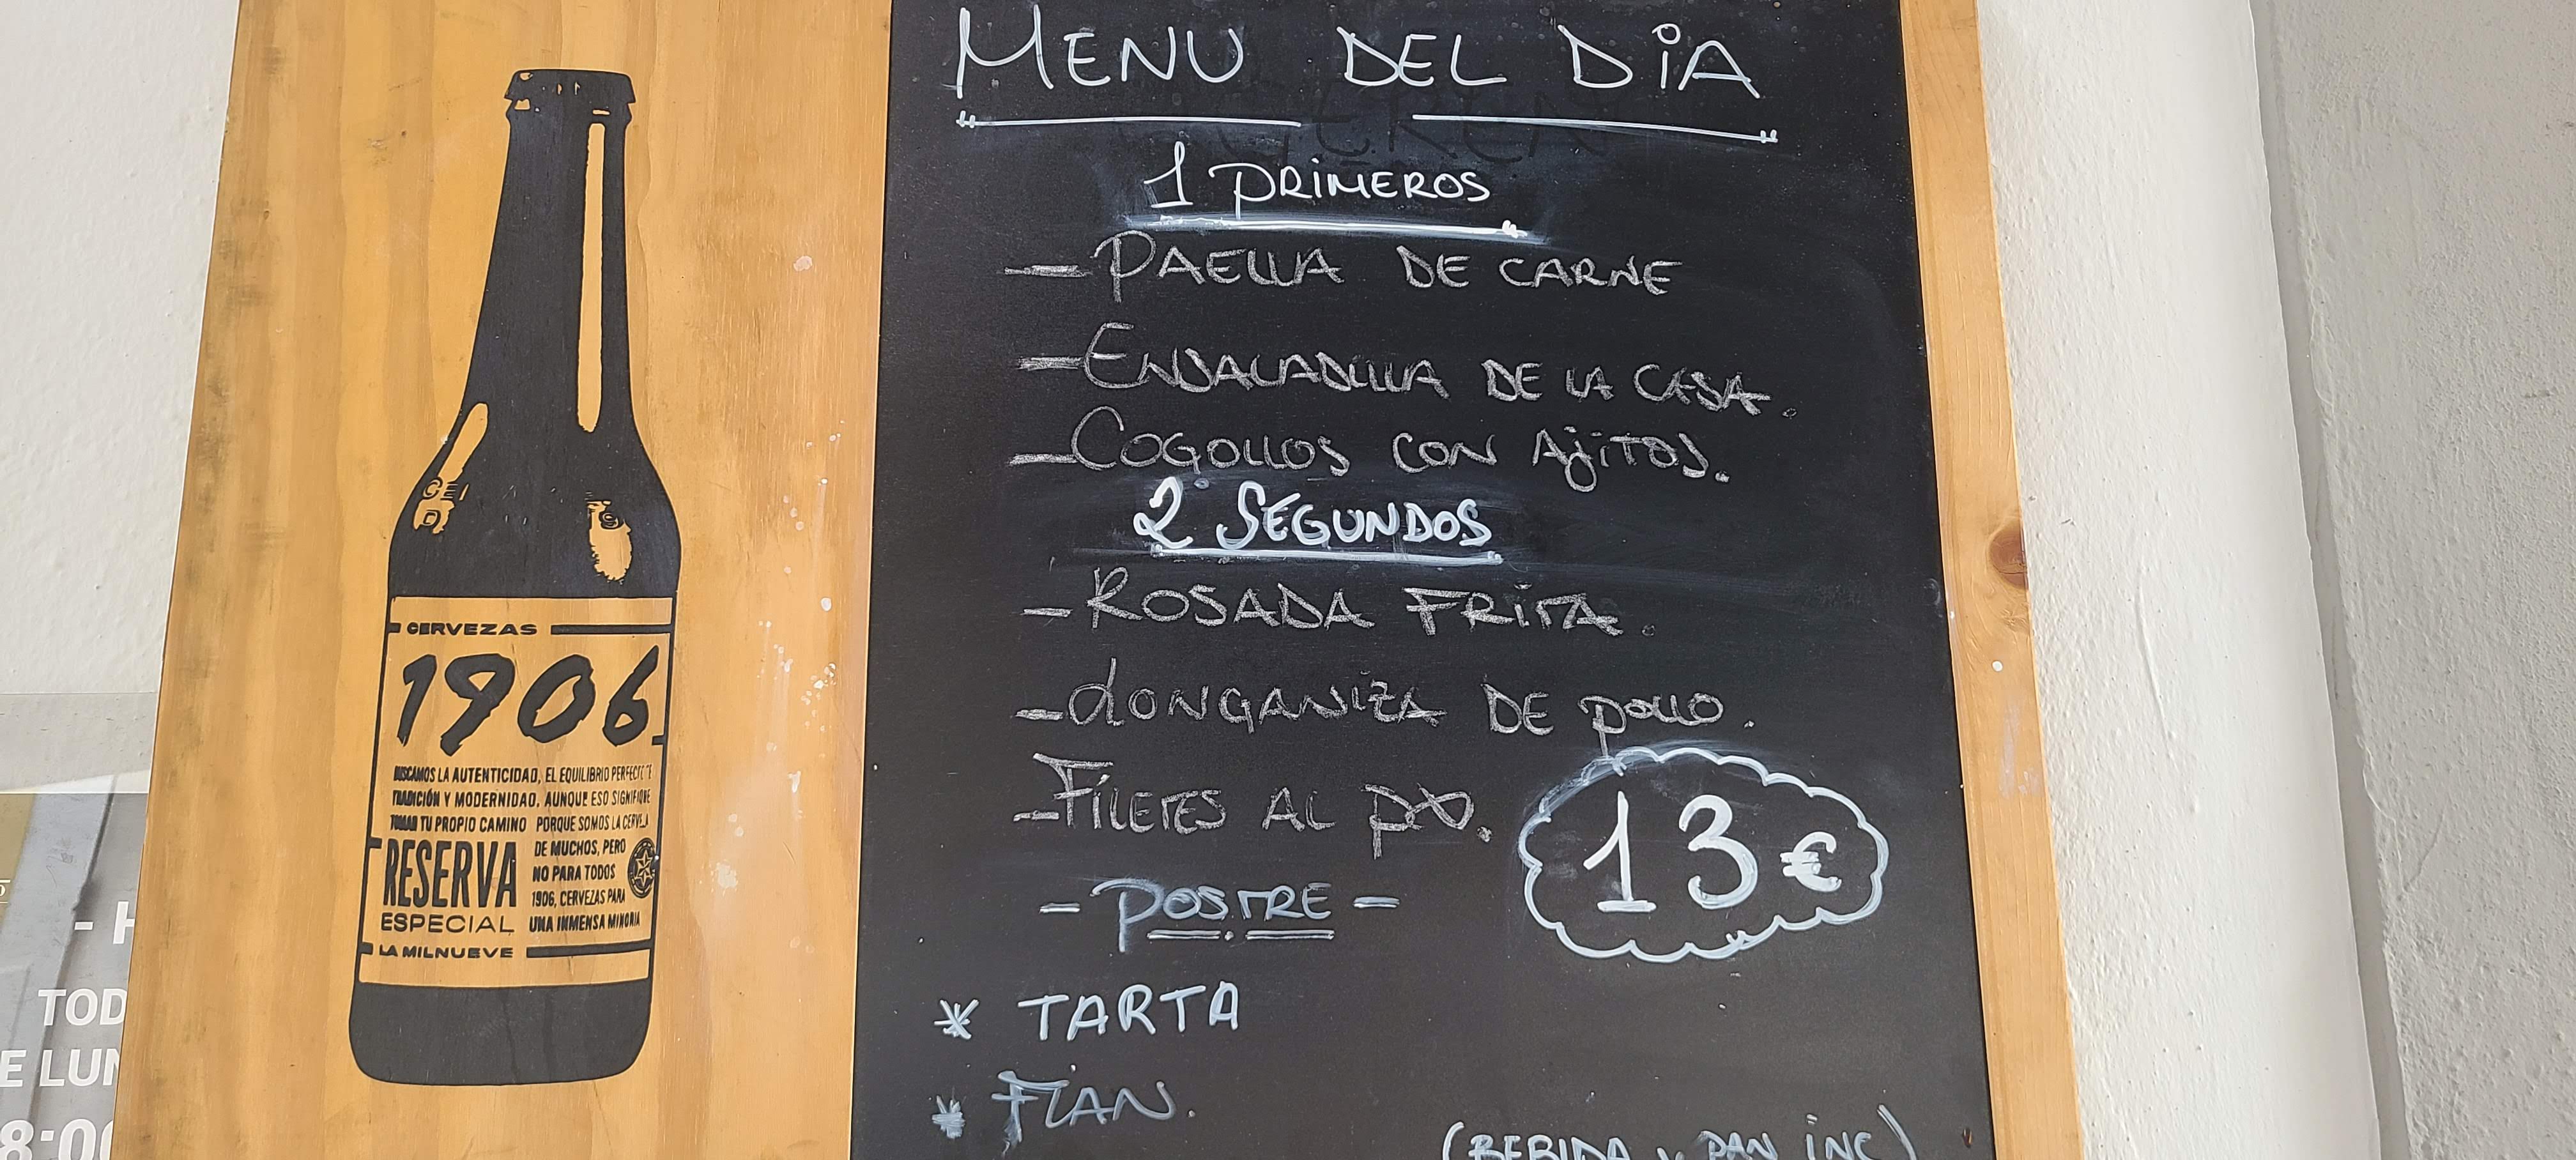 CERVEZAS
1906
BUSCAMOS LA AUTENTICIDAD, EL EQUILIBRIO PERFECTO DE
TRADICIÓN Y MODERNIDAD, AUNQUE ESO SIGNIFIQUE
TOMAR TU PROPIO CAMINO PORQUE SOMOS LA CERVEZA
DE MUCHOS, PERO
NO PARA TODOS
1906, CERVEZAS PARA
UNA INMENSA MINORIA
RESERVA
ESPECIAL
LA MILNUEVE
MENU DEL DiA
1 PRiMEROS
- PAELLA DE CARNE
- ENSALADILLA DE LA CASA.
- COGOLLOS CON AjiTOS.
2 SEGUNDOS
- ROSADA FRiTA.
- LONGANiZA DE POLLO.
- FiLETES AL PX.
13 €
- POSTRE -
* TARTA
* FLAN.
(BEBiDA y PAN iNC)
- H
TOD
E LUN
8:00